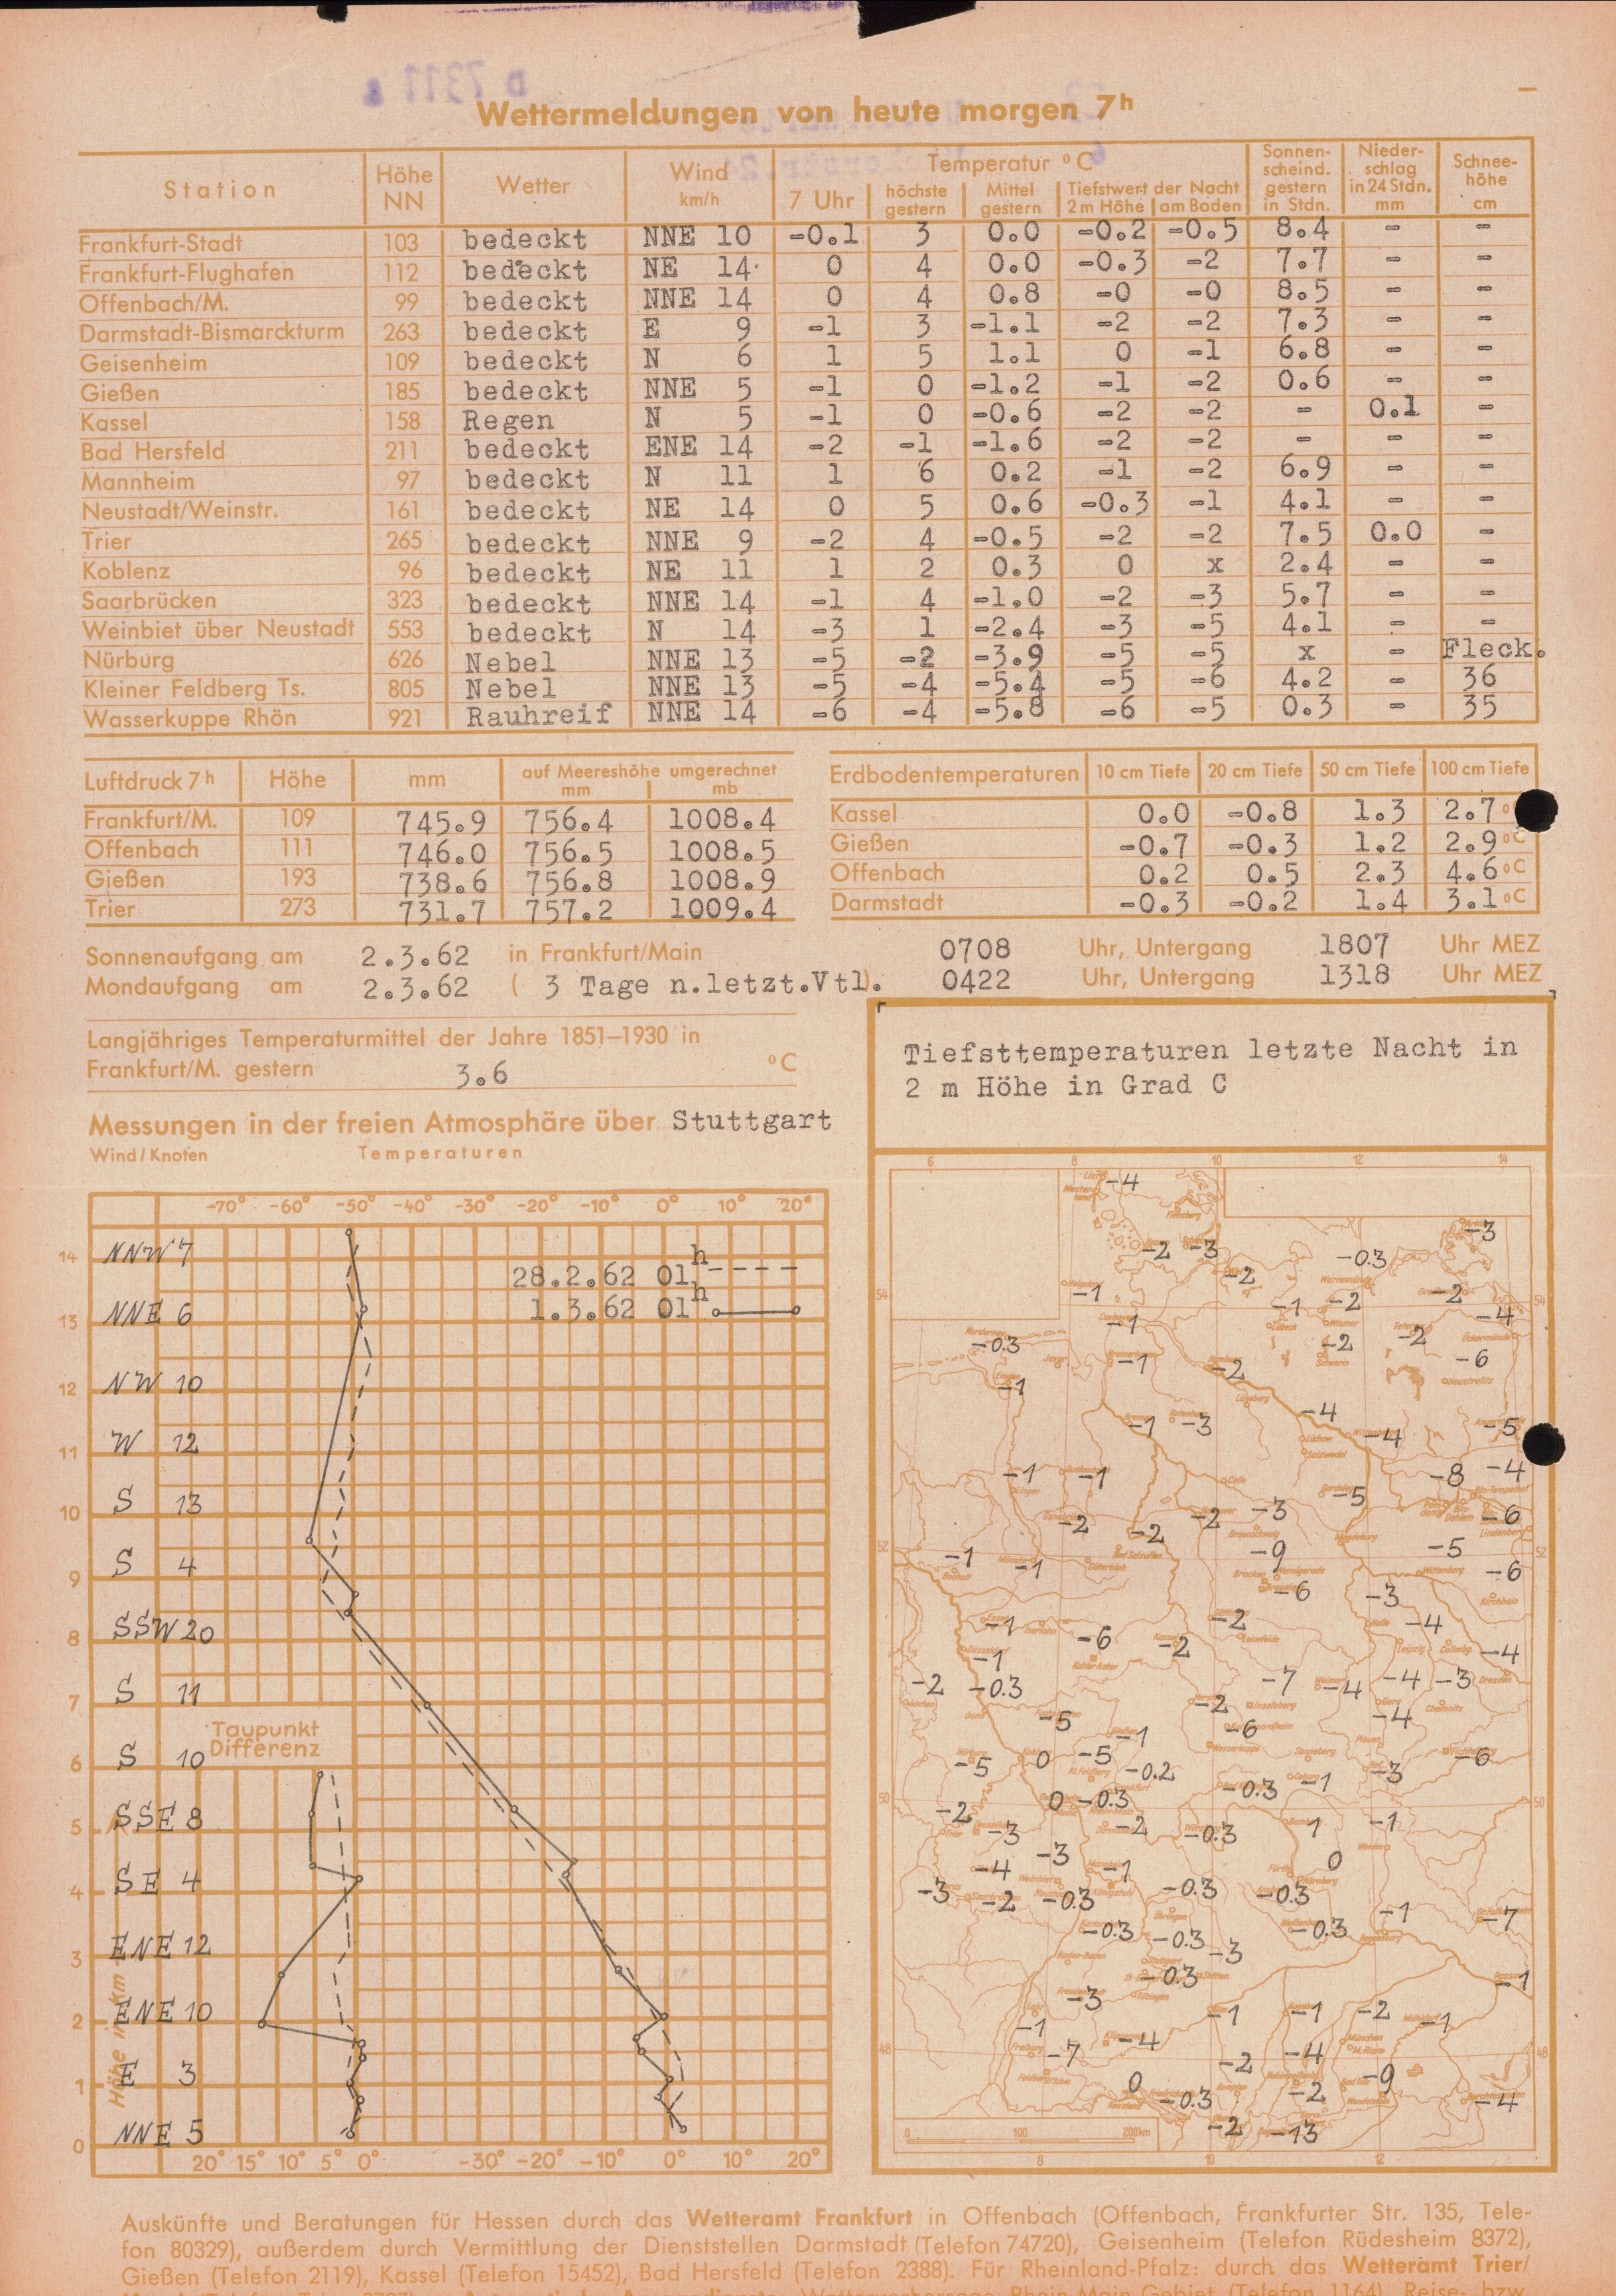 Wettermeldungen von heute morgen 7h
Station Höhe NN Wetter Wind km/h Temperatur °C Sonnenscheind. gestern in Stdn. Niederschlag in 24 Stdn. mm Schneehöhe cm
7 Uhr höchste gestern Mittel gestern Tiefstwert der Nacht 2 m Höhe am Boden
Frankfurt-Stadt 103 bedeckt NNE 10 -0.1 3 0.0 -0.2 -0.5 8.4 - -
Frankfurt-Flughafen 112 bedeckt NE 14 0 4 0.0 -0.3 -2 7.7 - -
Offenbach/M. 99 bedeckt NNE 14 0 4 0.8 -0 -0 8.5 - -
Darmstadt-Bismarckturm 263 bedeckt E 9 -1 3 -1.1 -2 -2 7.3 - -
Geisenheim 109 bedeckt N 6 1 5 1.1 0 -1 6.8 - -
Gießen 185 bedeckt NNE 5 -1 0 -1.2 -1 -2 0.6 - -
Kassel 158 Regen N 5 -1 0 -0.6 -2 -2 - 0.1 -
Bad Hersfeld 211 bedeckt ENE 14 -2 -1 -1.6 -2 -2 - - -
Mannheim 97 bedeckt N 11 1 6 0.2 -1 -2 6.9 - -
Neustadt/Weinstr. 161 bedeckt NE 14 0 5 0.6 -0.3 -1 4.1 - -
Trier 265 bedeckt NNE 9 -2 4 -0.5 -2 -2 7.5 0.0 -
Koblenz 96 bedeckt NE 11 1 2 0.3 0 x 2.4 - -
Saarbrücken 323 bedeckt NNE 14 -1 4 -1.0 -2 -3 5.7 - -
Weinbiet über Neustadt 553 bedeckt N 14 -3 1 -2.4 -3 -5 4.1 - -
Nürburg 626 Nebel NNE 13 -5 -2 -3.9 -5 -5 x - Fleck.
Kleiner Feldberg Ts. 805 Nebel NNE 13 -5 -4 -5.4 -5 -6 4.2 - 36
Wasserkuppe Rhön 921 Rauhreif NNE 14 -6 -4 -5.8 -6 -5 0.3 - 35
Luftdruck 7h Höhe mm auf Meereshöhe umgerechnet mm mb
Frankfurt/M. 109 745.9 756.4 1008.4
Offenbach 111 746.0 756.5 1008.5
Gießen 193 738.6 756.8 1008.9
Trier 273 731.7 757.2 1009.4
Erdbodentemperaturen 10 cm Tiefe 20 cm Tiefe 50 cm Tiefe 100 cm Tiefe
Kassel 0.0 -0.8 1.3 2.7
Gießen -0.7 -0.3 1.2 2.9 °C
Offenbach 0.2 0.5 2.3 4.6 °C
Darmstadt -0.3 -0.2 1.4 3.1 °C
Sonnenaufgang am 2.3.62 in Frankfurt/Main 0708 Uhr, Untergang 1807 Uhr MEZ
Mondaufgang am 2.3.62 ( 3 Tage n.letzt.Vtl). 0422 Uhr, Untergang 1318 Uhr MEZ
Langjähriges Temperaturmittel der Jahre 1851–1930 in
Frankfurt/M. gestern 3.6 °C
Messungen in der freien Atmosphäre über Stuttgart
Wind/Knoten Temperaturen
-70° -60° -50° -40° -30° -20° -10° 0° 10° 20°
14 NNW 7
28.2.62 01h
13 NNE 6
1.3.62 01h
12 NW 10
11 W 12
10 S 13
9 S 4
8 SSW 20
7 S 11
Taupunkt
Differenz
6 S 10
5 SSE 8
4 SE 4
3 ENE 12
2 ENE 10
1 E 3
0 NNE 5
Höhe in km
20° 15° 10° 5° 0° -30° -20° -10° 0° 10° 20°
Tiefsttemperaturen letzte Nacht in
2 m Höhe in Grad C
6 8 10 12 14
-4
-3
-2 -3 -0.3
-2
-1 -1 -2 -2
54 54
-1 -4
-0.3 -2 -2
-1 -2 -6
-1
-4
-1 -3 -4 -5
-1 -1 -8 -4
-5
-2 -2 -2 -3 -6
52 52
-1 -1 -9 -5
-6 -3 -6
-1 -6 -2 -2 -4
-1 -4
-2 -0.3 -7 -4 -4 -3
-5 -2 -4
-1 -6
-5 0 -5 -0.2 -3 -6
0 -0.3 -0.3 -1
50 50
-2 -3 -2 -0.3 1 -1
-4 -3 -1 0
-3 -2 -0.3 -0.3 -0.3
-0.3 -0.3 -3 -0.3 -1 -7
-0.3 -1
-3 -1 -1 -2 -1
-1 -4
48 48
-7 -2 -4
0 -0.3 -2 -9 -4
-2 -13
0 100 200 km
8 10 12
Auskünfte und Beratungen für Hessen durch das Wetteramt Frankfurt in Offenbach (Offenbach, Frankfurter Str. 135, Tele-
fon 80329), außerdem durch Vermittlung der Dienststellen Darmstadt (Telefon 74720), Geisenheim (Telefon Rüdesheim 8372),
Gießen (Telefon 2119), Kassel (Telefon 15452), Bad Hersfeld (Telefon 2388). Für Rheinland-Pfalz: durch das Wetteramt Trier/